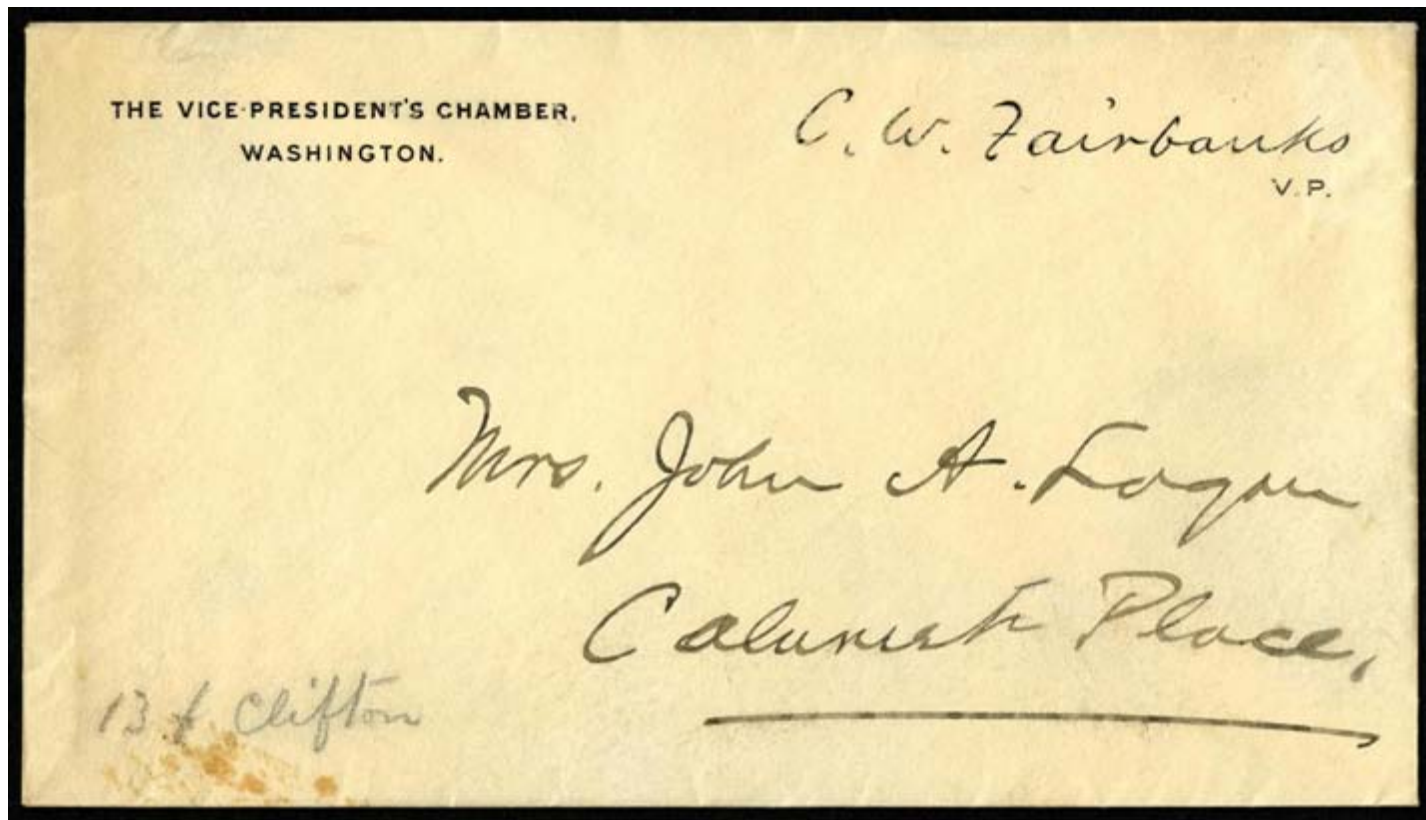 THE VICE-PRESIDENT'S CHAMBER,
WASHINGTON.
C. W. Fairbanks
V.P.
Mrs. John A. Logan
Place,
13 Clifton